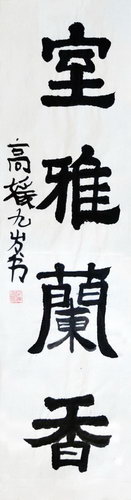 室雅蘭香
高媛九岁书